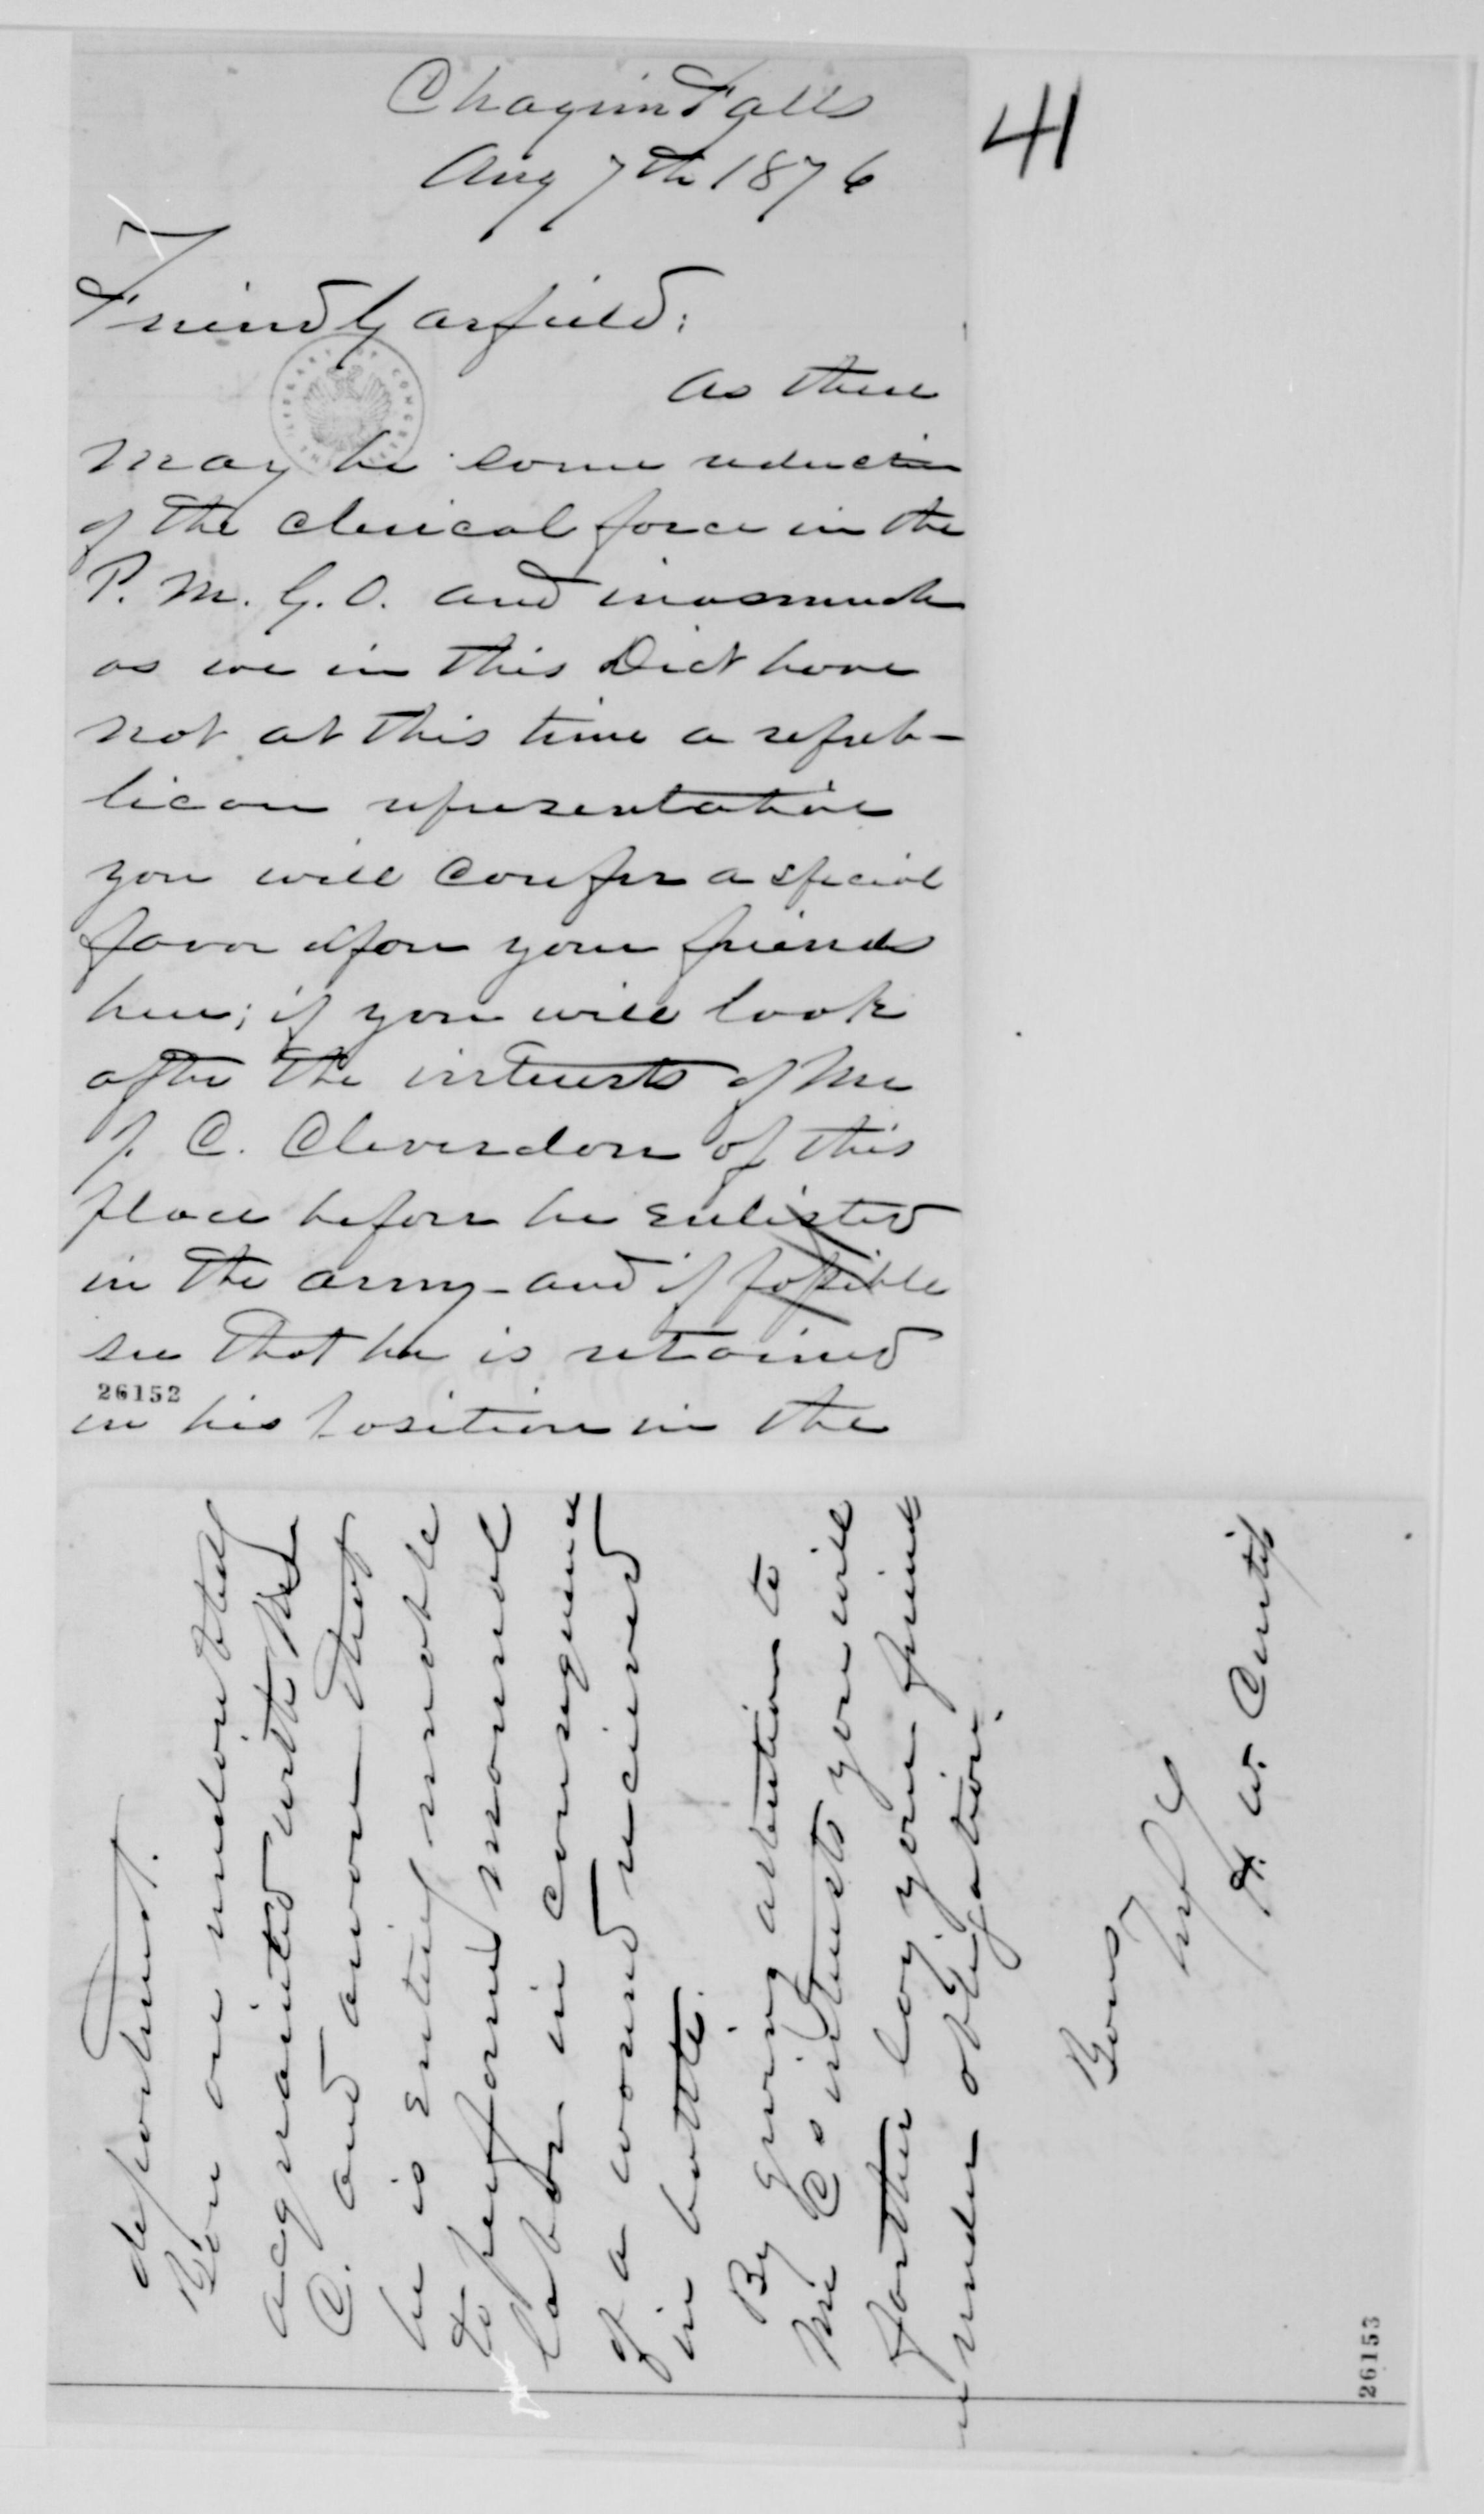 41
Chagrin Falls
Aug 7th 1876
Friend Garfield:
As there
may be some reduction
of the clerical force in the
P. M. G. O. and inasmuch
as we in this Dict have
not at this time a repub-
lican representative
you will confer a special
favor upon your friends
here; if you will look
after the interests of Mr
J. C. Cleverdon of this
place before he enlisted
in the army - and if possible
see that he is retained
26152
in his position in the
department.
You are undoubtedly
acquainted with Mr
C. and aware that
he is entirely unable
to perform manual
labor in consequence
of a wound recieved
in battle.
By giving attention to
Mr C's interests you will
farther lay your friend
under obligation.
Yours
Truly
H. W. Curtis
26153
LIBRARY OF CONGRESS